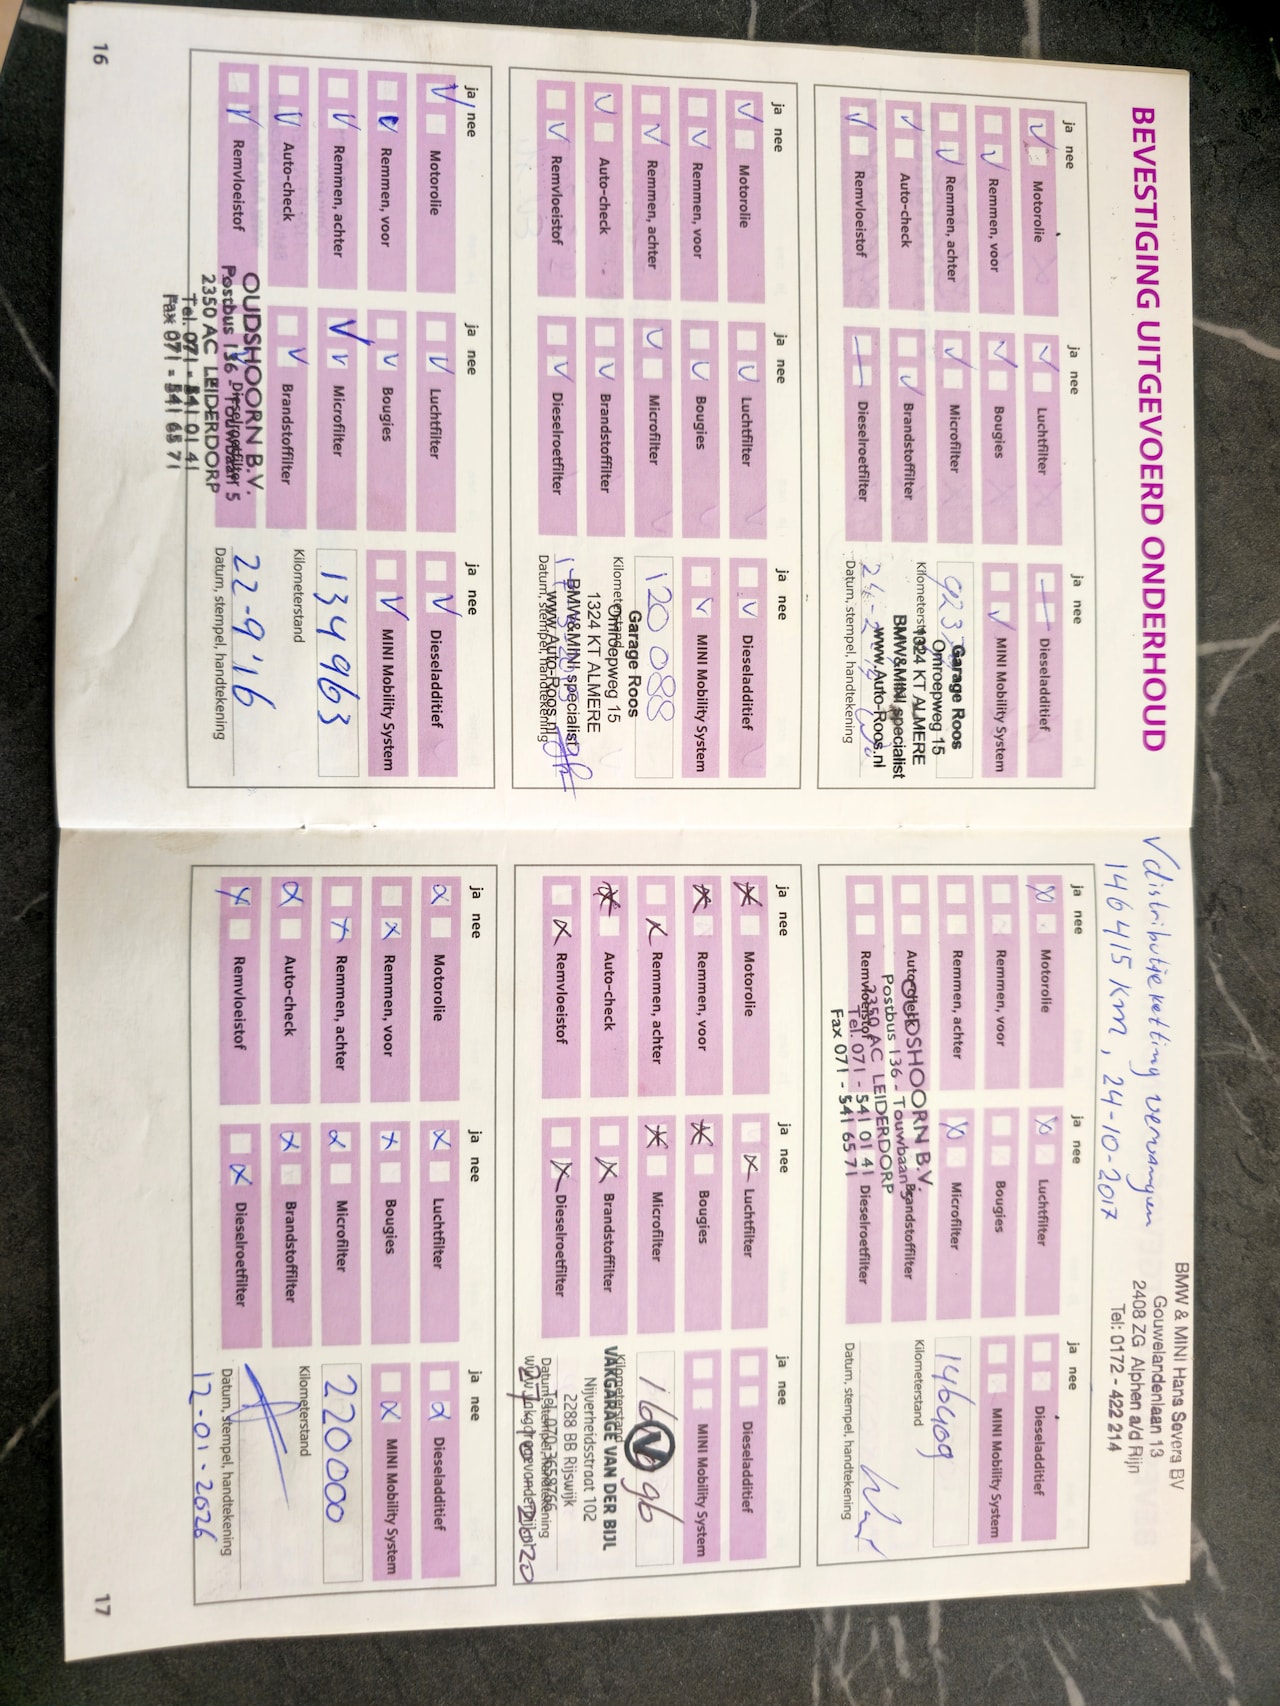 BEVESTIGING UITGEVOERD ONDERHOUD
ja nee
Motorolie
Remmen, voor
Remmen, achter
Auto-check
Remvloeistof
ja nee
Luchtfilter
Bougies
Microfilter
Brandstoffilter
Dieselroetfilter
ja nee
Dieseladditief
MINI Mobility System
Kilometerstand
Garage Roos
Omroepweg 15
1324 KT ALMERE
BMW&MINI specialist
www.Auto-Roos.nl
Datum, stempel, handtekening
ja nee
Motorolie
Remmen, voor
Remmen, achter
Auto-check
Remvloeistof
ja nee
Luchtfilter
Bougies
Microfilter
Brandstoffilter
Dieselroetfilter
ja nee
Dieseladditief
MINI Mobility System
120 088
Kilometerstand
Garage Roos
Omroepweg 15
1324 KT ALMERE
BMW&MINI specialist
www.Auto-Roos.nl
Datum, stempel, handtekening
ja nee
Motorolie
Remmen, voor
Remmen, achter
Auto-check
Remvloeistof
ja nee
Luchtfilter
Bougies
Microfilter
Brandstoffilter
Dieselroetfilter
ja nee
Dieseladditief
MINI Mobility System
134963
Kilometerstand
22-9'16
Datum, stempel, handtekening
OUDSHOORN B.V.
Postbus 136 - Touwbaan 5
2350 AC LEIDERDORP
Tel. 071 - 541 01 41
Fax 071 - 541 65 71
16
BMW & MINI Hans Severs BV
Gouwelandenlaan 13
2408 ZG Alphen a/d Rijn
Tel: 0172 - 422 214
V distributieketting vervangen
146415 km, 24-10-2017
ja nee
Motorolie
Remmen, voor
Remmen, achter
Auto-check
Remvloeistof
ja nee
Luchtfilter
Bougies
Microfilter
Brandstoffilter
Dieselroetfilter
ja nee
Dieseladditief
MINI Mobility System
146409
Kilometerstand
Datum, stempel, handtekening
OUDSHOORN B.V.
Postbus 136 - Touwbaan 5
2350 AC LEIDERDORP
Tel. 071 - 541 01 41
Fax 071 - 541 65 71
ja nee
Motorolie
Remmen, voor
Remmen, achter
Auto-check
Remvloeistof
ja nee
Luchtfilter
Bougies
Microfilter
Brandstoffilter
Dieselroetfilter
ja nee
Dieseladditief
MINI Mobility System
Kilometerstand
VAKGARAGE VAN DER BIJL
Nijverheidsstraat 102
2288 BB Rijswijk
Datum, stempel, handtekening
ja nee
Motorolie
Remmen, voor
Remmen, achter
Auto-check
Remvloeistof
ja nee
Luchtfilter
Bougies
Microfilter
Brandstoffilter
Dieselroetfilter
ja nee
Dieseladditief
MINI Mobility System
220000
Kilometerstand
Datum, stempel, handtekening
12-01-2026
17